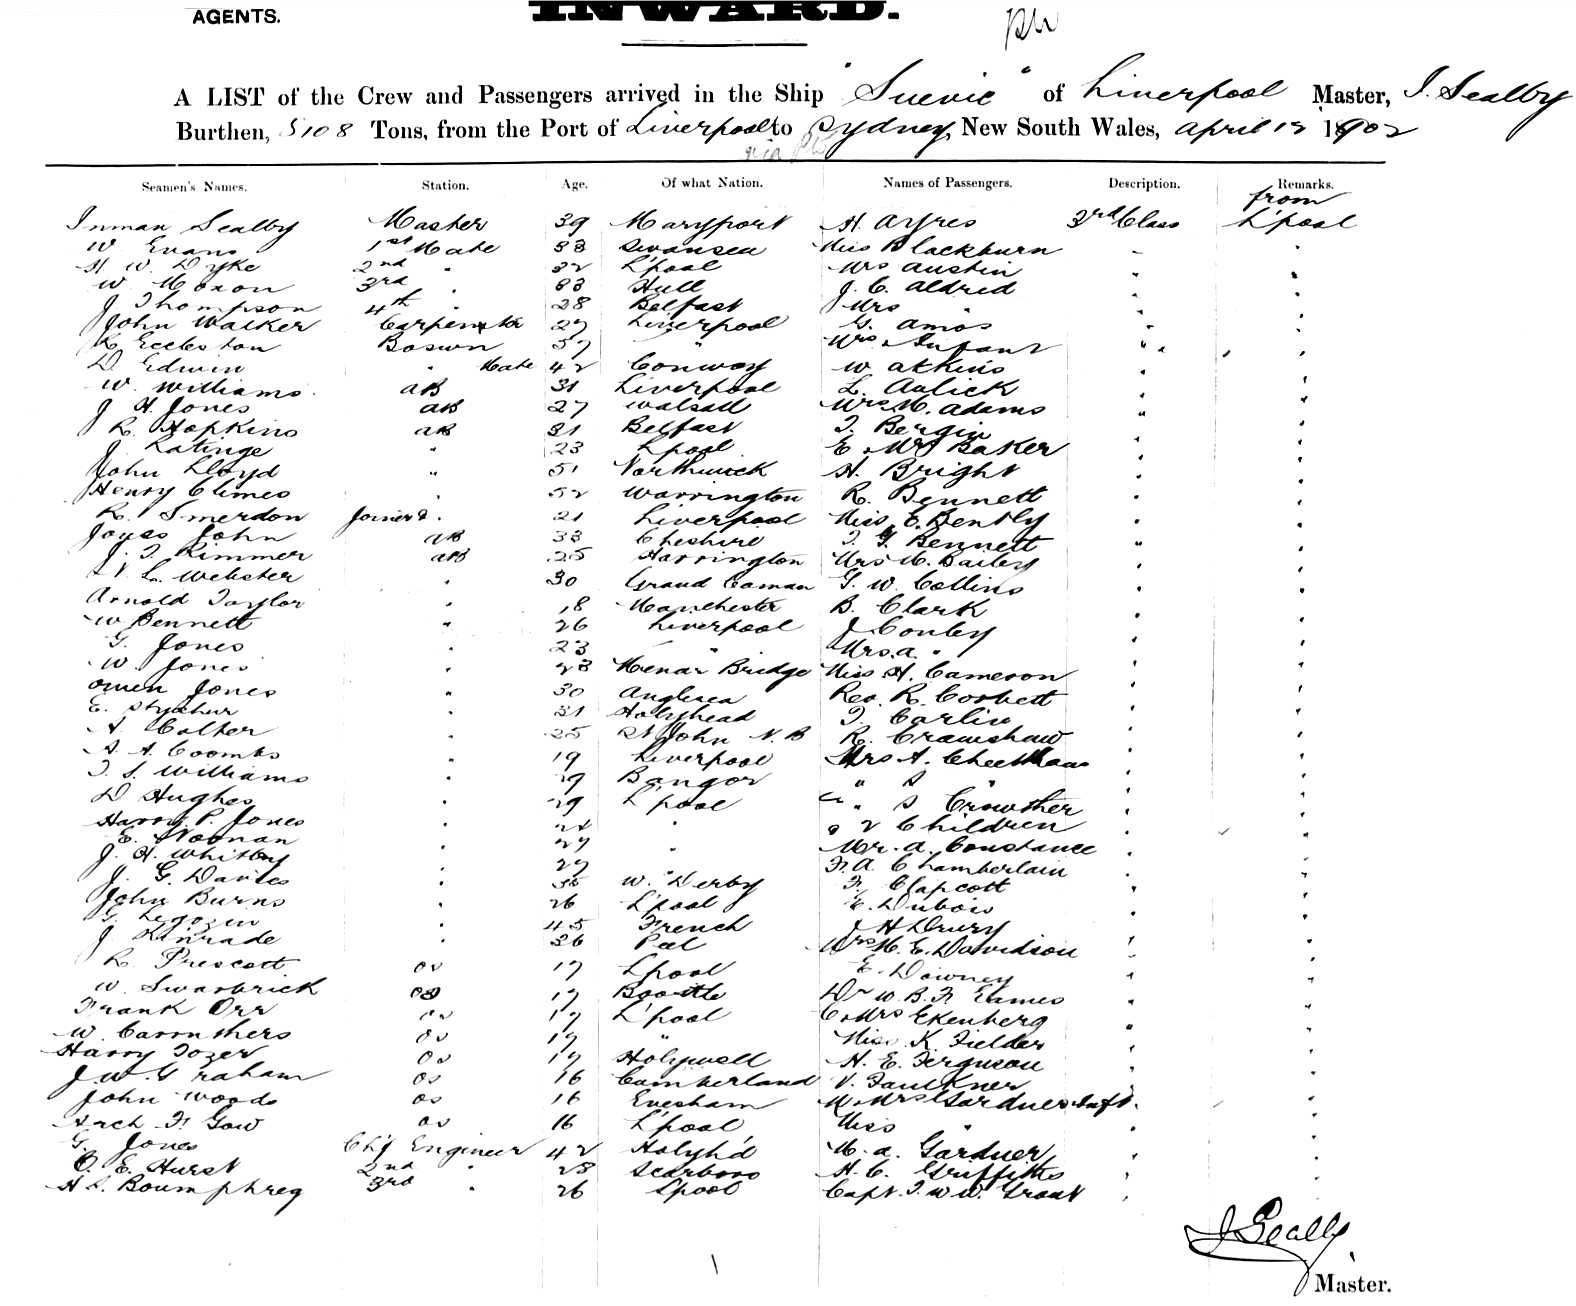 AGENTS.
INWARD.
A LIST of the Crew and Passengers arrived in the Ship "Suevic" of Liverpool Master, I. Sealby
Burthen, 5108 Tons, from the Port of Liverpool to Sydney, New South Wales, April 1902
via
Seamen's Names. Station. Age. Of what Nation. Names of Passengers. Description. Remarks.
from
Inman Sealby Master 39 Maryport H. Ayres 3rd Class L'pool
W Evans 1st Mate 33 Swansea Miss Blackburn "
H. W. Dyke 2nd " 32 L'pool Mrs Austin " "
W. Moxon 3rd " 33 Hull J. C. Aldred " "
J Thompson 4th " 28 Belfast Mrs " " "
John Walker Carpenter 27 Liverpool G. Amos " "
R Eccleston Boswn 37 " Mrs & Infant " "
D Edwin " Mate 42 Conway W Atkins " "
W. Williams AB 31 Liverpool L. Aulick " "
J H. Jones AB 27 Walsall Mrs M. Adams " "
R. Hopkins AB 31 Belfast T. Bergin " "
J. Latinge " 23 L'pool E & Mrs Baker " "
John Lloyd " 51 Northwick H. Bright " "
Henry Climes " 52 Warrington R. Bennett " "
R. Smerdon Joiner 21 Liverpool Miss E. Bently " "
John AB 33 Cheshire T. G. Bennett " "
J. T Rimmer AB 25 Harrington Mrs M. Bailey " "
L. Webster " 30 Grand Caman G. W. Collins " "
Arnold Taylor " 18 Manchester B. Clark " "
W Bennett " 26 Liverpool J Conley " "
G. Jones " 23 " Mrs A. " " "
W. Jones " 28 Menai Bridge Miss H. Cameron " "
Owen Jones " 30 Anglesea Rev. R. Corbett " "
E. " 31 Holyhead T. Carlin " "
A. Colter " 25 St John N.B R. Crawshaw " "
A. A. Coombs " 19 Liverpool Mrs A. Cheetham " "
T. S. Williams " 29 Bangor " S " " "
D Hughes " 29 L'pool " S Crowther " "
Harry P. Jones " " 2 Children " "
E. Noonan " 27 " Mr. A. Constance " "
J. H. Whitby " 27 F. A. Chamberlain " "
J. G. Davies " 35 W. Derby F. Clapcott " "
John Burns " 26 L'pool E. Dubois " "
G. " 45 French J H Drury " "
J Kinrade " 36 Peel Mrs M. E. Davidson " "
R. Prescott OS 17 L'pool E. Downey " "
W. Swarbrick OS 17 Bootle Dr W. B. F. Eames " "
Frank Orr OS 17 L'pool C & Mrs Ekenberg " "
W. Carruthers OS 17 " Miss K. Fielder " "
Harry Tozer OS 17 Holywell H. E. Ferguson " "
J. W. Graham OS 16 Cumberland V. Faulkner " "
John Woods OS 16 Evesham M. Mrs Gardner Inft. "
Arch. F. Gow OS 16 L'pool Miss " " "
G. Jones Chf Engineer 42 Holyh'd M. A. Gardner " "
C. E. Hurst 2nd " 28 Scarboro H. C. Griffiths " "
H S. Boumphreg 3rd " 26 L'pool Capt. T. W. W. Groat " "
I. Sealby
Master.